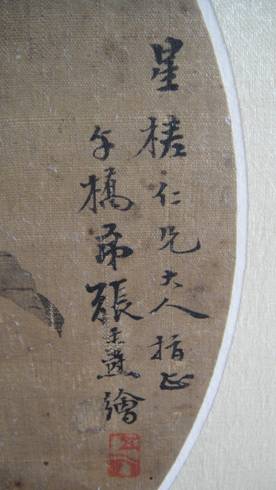 星槎仁兄大人指正
午橋弟張盛繪